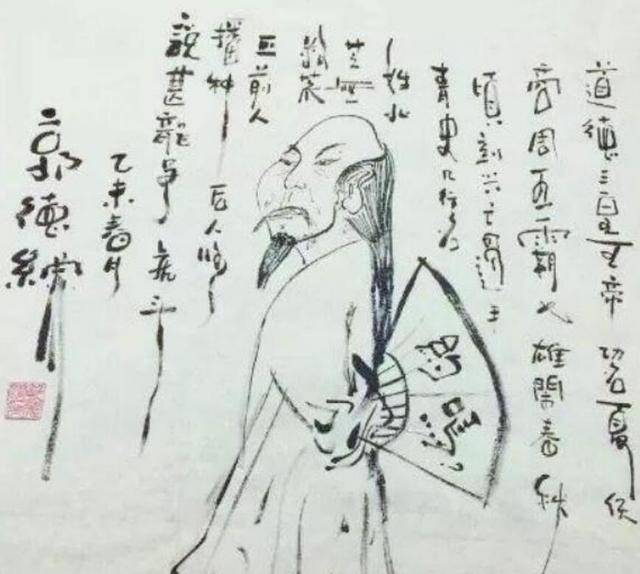 道德三皇五帝功名夏侯
商周五霸七雄閙春秋
頃刻兴亡過手
青史几行名
姓北
芒無
数荒
丘前人
播种后人收
説甚龍争虎斗
乙未春月
郭德綱